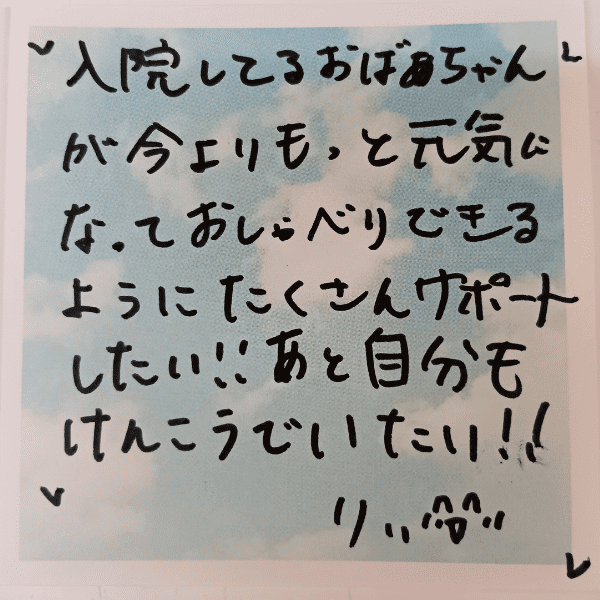 入院してるおばあちゃん
が今よりもっと元気に
なっておしゃべりできる
ようにたくさんサポート
したい!!あと自分も
けんこうでいたい!!
りぃ